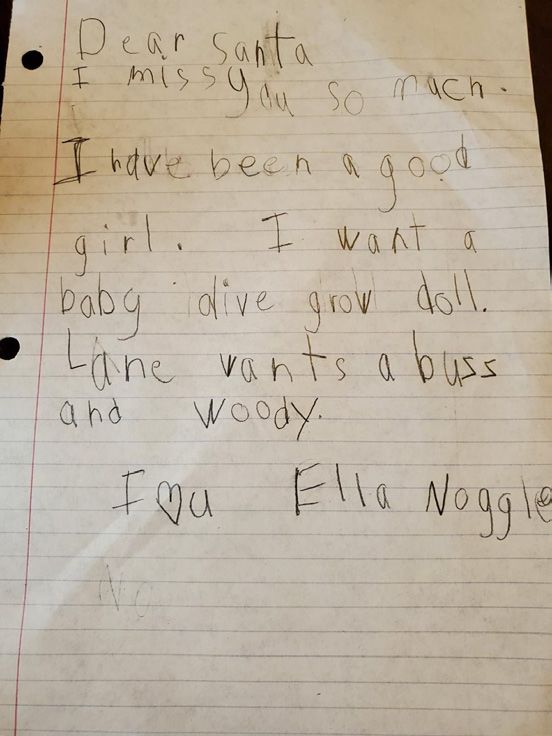 Dear santa
I miss you so much.
I have been a good
girl. I want a
baby alive grow doll.
Lane vants a buss
and woody.
I ♡ u Ella Noggle
No